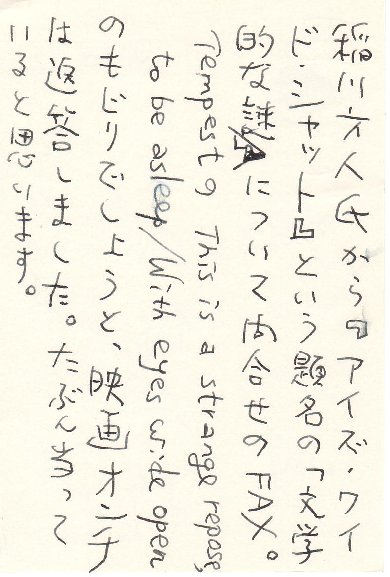 稲川方人氏から『アイズ・ワイ
ド・シャット』という題名の「文学
的な謎」について問合せのFAX。
Tempestの This is a strange repose,
to be asleep/With eyes wide open
のもじりでしょうと、映画オンチ
は返答しました。たぶん当って
いると思います。